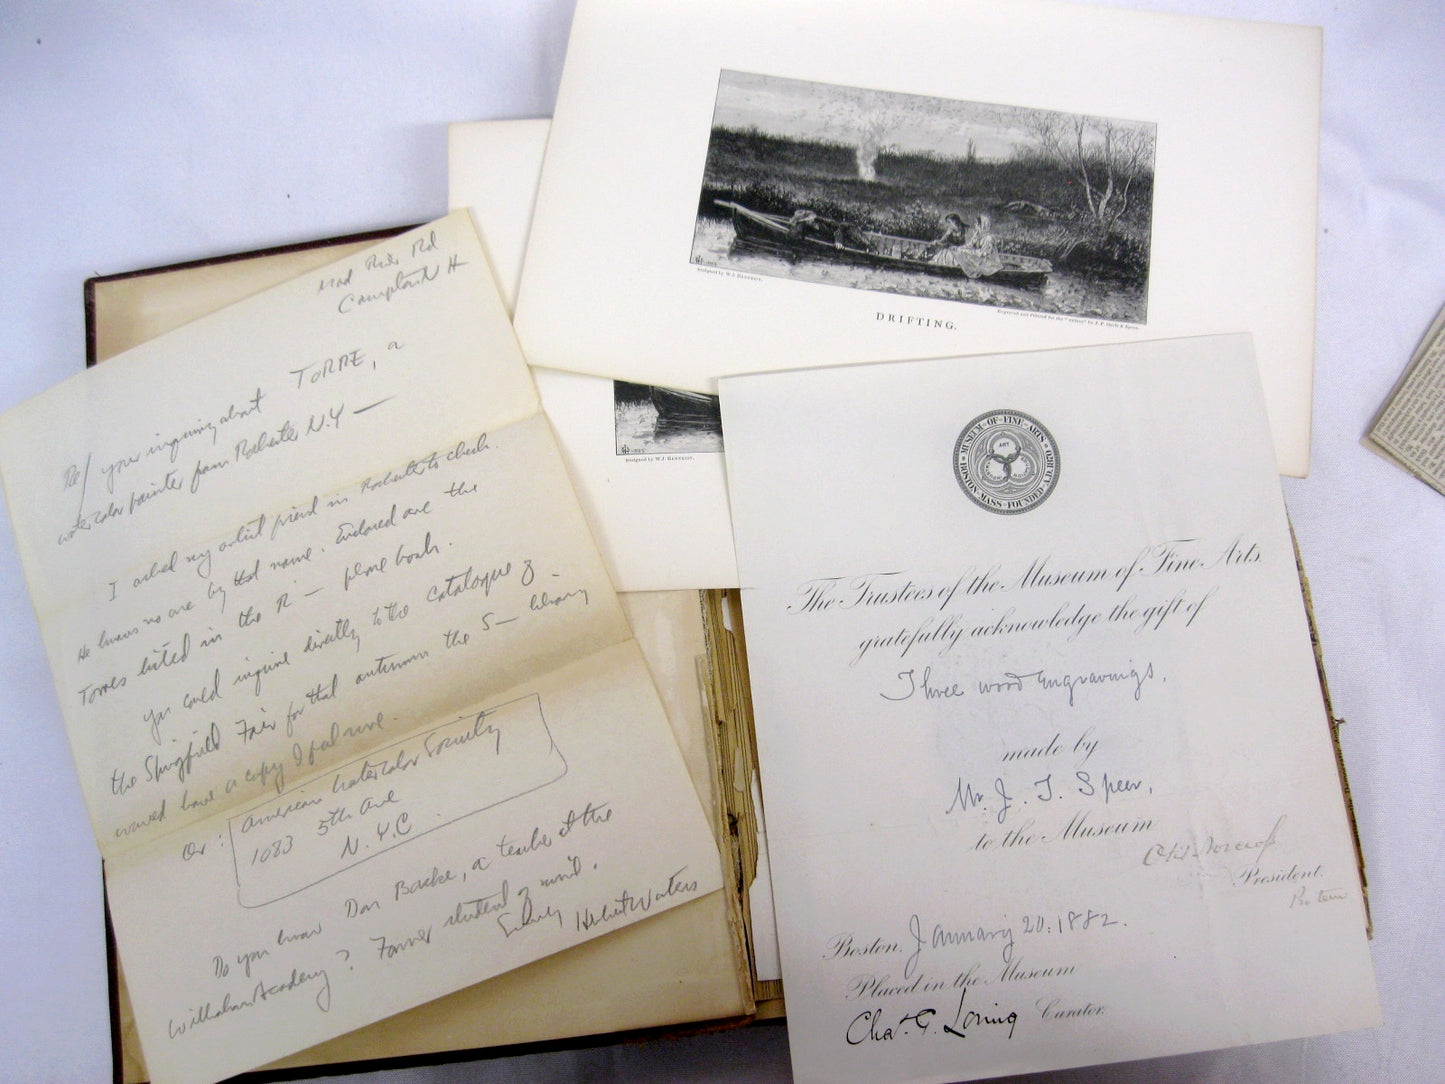 Mad River Rd
Campton N H
Re/ your inquiry about TORRE, a
watercolor painter from Rochester N.Y —
I asked my artist friend in Rochester to check.
He knows no one by that name. Enclosed are the
Torres listed in the R — phone book.
you could inquire directly to the catalogue of
the Springfield Fair for that autumn the S — library
would have a copy I feel sure.
Or: American Watercolor Society
1083 5th Ave
N.Y.C
Do you know Don, a teacher at the
Wilbraham Academy? Former student of mine.
Herbert Waters
Designed by W.J. HENNESSY.
Engraved and Printed for the "Aldine" by
DRIFTING.
Designed by W.J. HENNESSY.
MUSEUM·OF·FINE·ARTS
BOSTON·MASS·FOUNDED
ART
The Trustees of the Museum of Fine Arts.
gratefully acknowledge the gift of
Three wood engravings,
made by
Mr. J. T. Speer,
to the Museum
Otis Norcross
President.
Pro tem
Boston, January 20: 1882.
Placed in the Museum
Chas. G. Loring Curator.